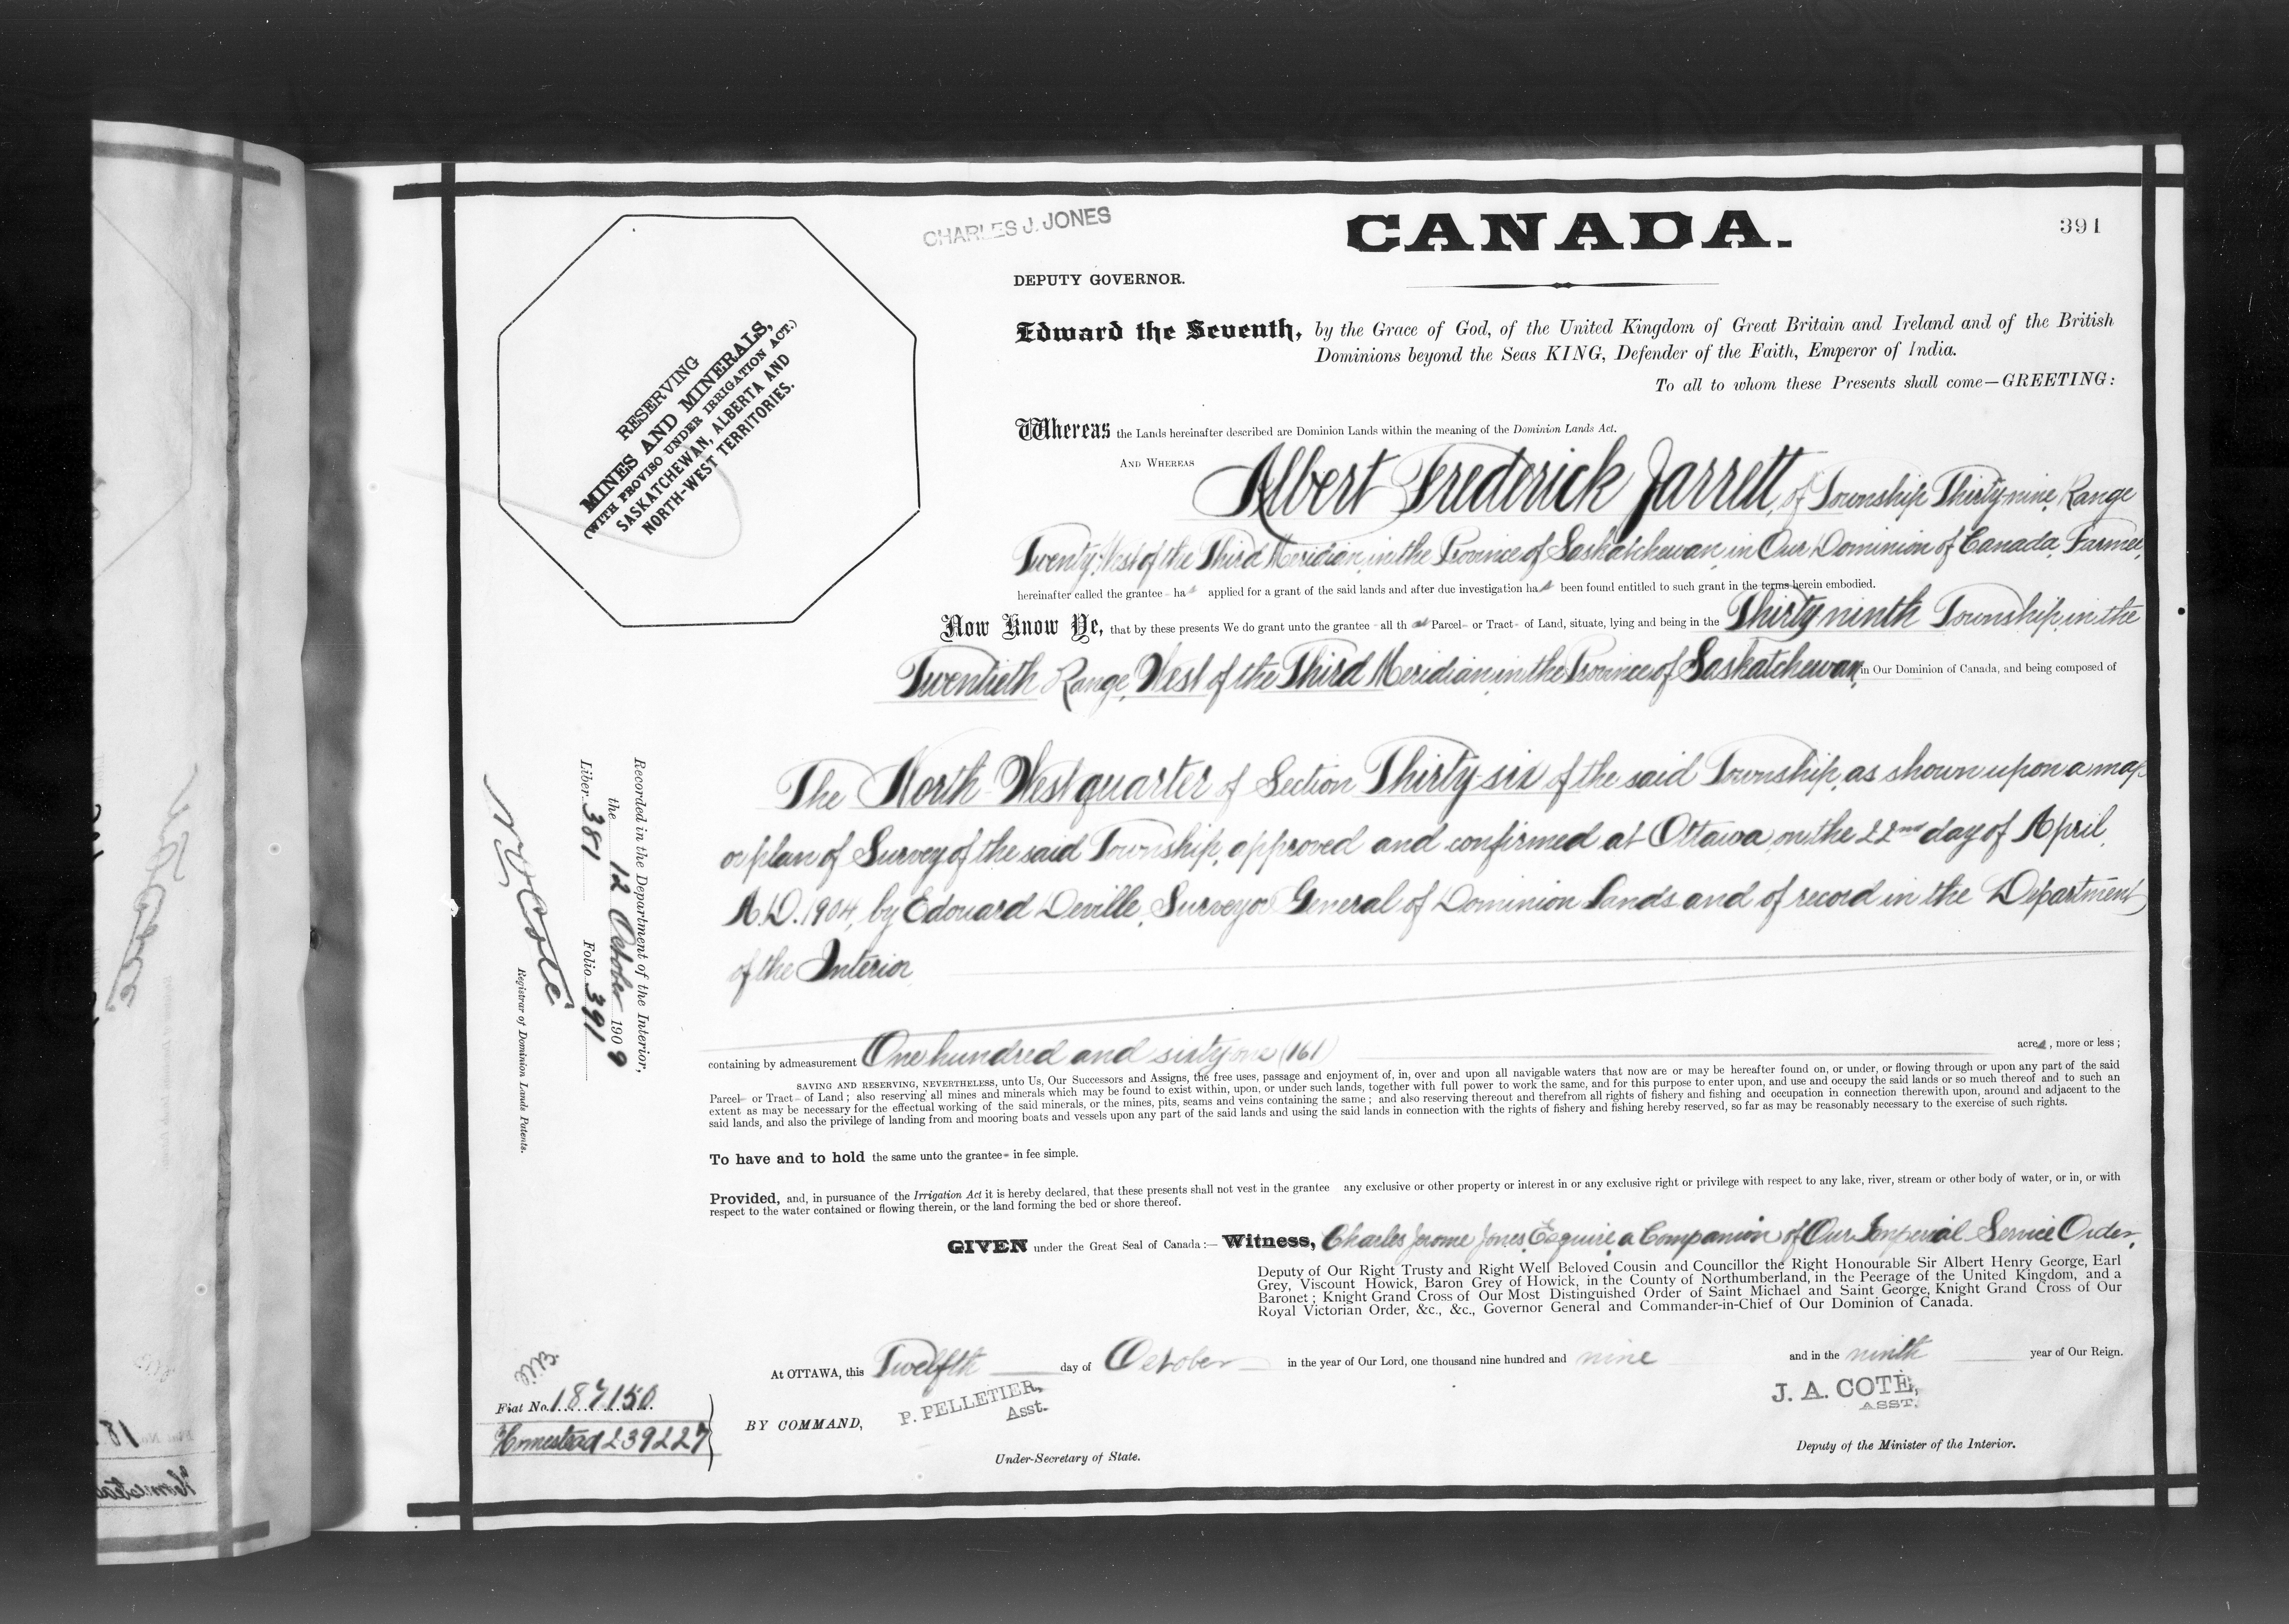 CHARLES J. JONES
CANADA.
391
DEPUTY GOVERNOR.
Edward the Seventh, by the Grace of God, of the United Kingdom of Great Britain and Ireland and of the British
Dominions beyond the Seas KING, Defender of the Faith, Emperor of India.
To all to whom these Presents shall come—GREETING:
RESERVING
MINES AND MINERALS,
(WITH PROVISO UNDER IRRIGATION ACT.)
SASKATCHEWAN, ALBERTA AND
NORTH-WEST TERRITORIES.
Whereas the Lands hereinafter described are Dominion Lands within the meaning of the Dominion Lands Act.
AND WHEREAS Albert Frederick Jarrett, of Township Thirty-nine, Range
Twenty, West of the Third Meridian, in the Province of Saskatchewan, in Our Dominion of Canada, Farmer,
hereinafter called the grantee - has applied for a grant of the said lands and after due investigation has been found entitled to such grant in the terms herein embodied.
Now Know Ye, that by these presents We do grant unto the grantee - all that Parcel- or Tract- of Land, situate, lying and being in the Thirty-ninth Township, in the
Twentieth Range, West of the Third Meridian, in the Province of Saskatchewan, in Our Dominion of Canada, and being composed of
The North West quarter of Section Thirty-six of the said Township, as shown upon a map
or plan of Survey of the said Township, approved and confirmed at Ottawa, on the 22nd day of April,
A.D. 1904, by Edouard Deville, Surveyor General of Dominion Lands and of record in the Department
of the Interior
containing by admeasurement One hundred and sixty one (161) acres, more or less ;
SAVING AND RESERVING, NEVERTHELESS, unto Us, Our Successors and Assigns, the free uses, passage and enjoyment of, in, over and upon all navigable waters that now are or may be hereafter found on, or under, or flowing through or upon any part of the said
Parcel- or Tract- of Land ; also reserving all mines and minerals which may be found to exist within, upon, or under such lands, together with full power to work the same, and for this purpose to enter upon, and use and occupy the said lands or so much thereof and to such an
extent as may be necessary for the effectual working of the said minerals, or the mines, pits, seams and veins containing the same ; and also reserving thereout and therefrom all rights of fishery and fishing and occupation in connection therewith upon, around and adjacent to the
said lands, and also the privilege of landing from and mooring boats and vessels upon any part of the said lands and using the said lands in connection with the rights of fishery and fishing hereby reserved, so far as may be reasonably necessary to the exercise of such rights.
To have and to hold the same unto the grantee- in fee simple.
Provided, and, in pursuance of the Irrigation Act it is hereby declared, that these presents shall not vest in the grantee any exclusive or other property or interest in or any exclusive right or privilege with respect to any lake, river, stream or other body of water, or in, or with
respect to the water contained or flowing therein, or the land forming the bed or shore thereof.
GIVEN under the Great Seal of Canada :— Witness, Charles Jerome Jones, Esquire, a Companion of Our Imperial Service Order,
Deputy of Our Right Trusty and Right Well Beloved Cousin and Councillor the Right Honourable Sir Albert Henry George, Earl
Grey, Viscount Howick, Baron Grey of Howick, in the County of Northumberland, in the Peerage of the United Kingdom, and a
Baronet ; Knight Grand Cross of Our Most Distinguished Order of Saint Michael and Saint George, Knight Grand Cross of Our
Royal Victorian Order, &c., &c., Governor General and Commander-in-Chief of Our Dominion of Canada.
At OTTAWA, this Twelfth day of October in the year of Our Lord, one thousand nine hundred and nine and in the ninth year of Our Reign.
P. PELLETIER,
Asst.
J. A. COTÉ,
ASST.
BY COMMAND,
Under-Secretary of State.
Deputy of the Minister of the Interior.
Recorded in the Department of the Interior,
the 12 October 1909
Liber 381 Folio 391
N.O. Coté
Registrar of Dominion Lands Patents.
Fiat No. 187150
Homestead 239227